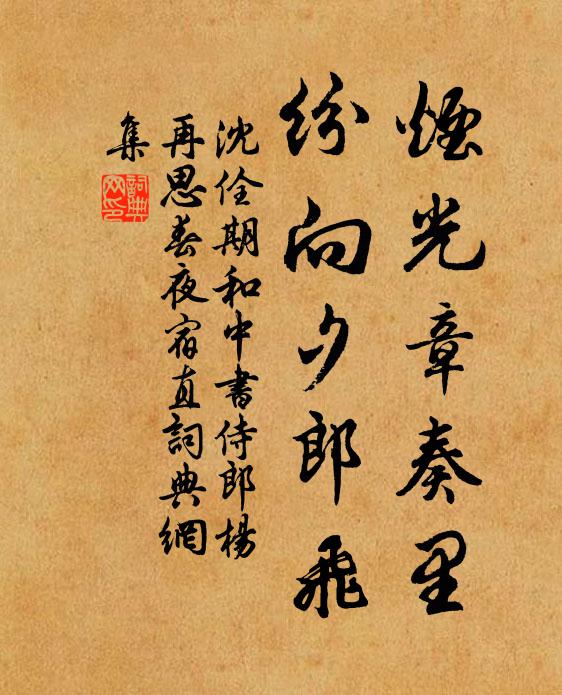 煙光章奏里
紛向夕郎飛
沈佺期和中書侍郎楊
再思春夜宿直詞典網
集
詞典
网印